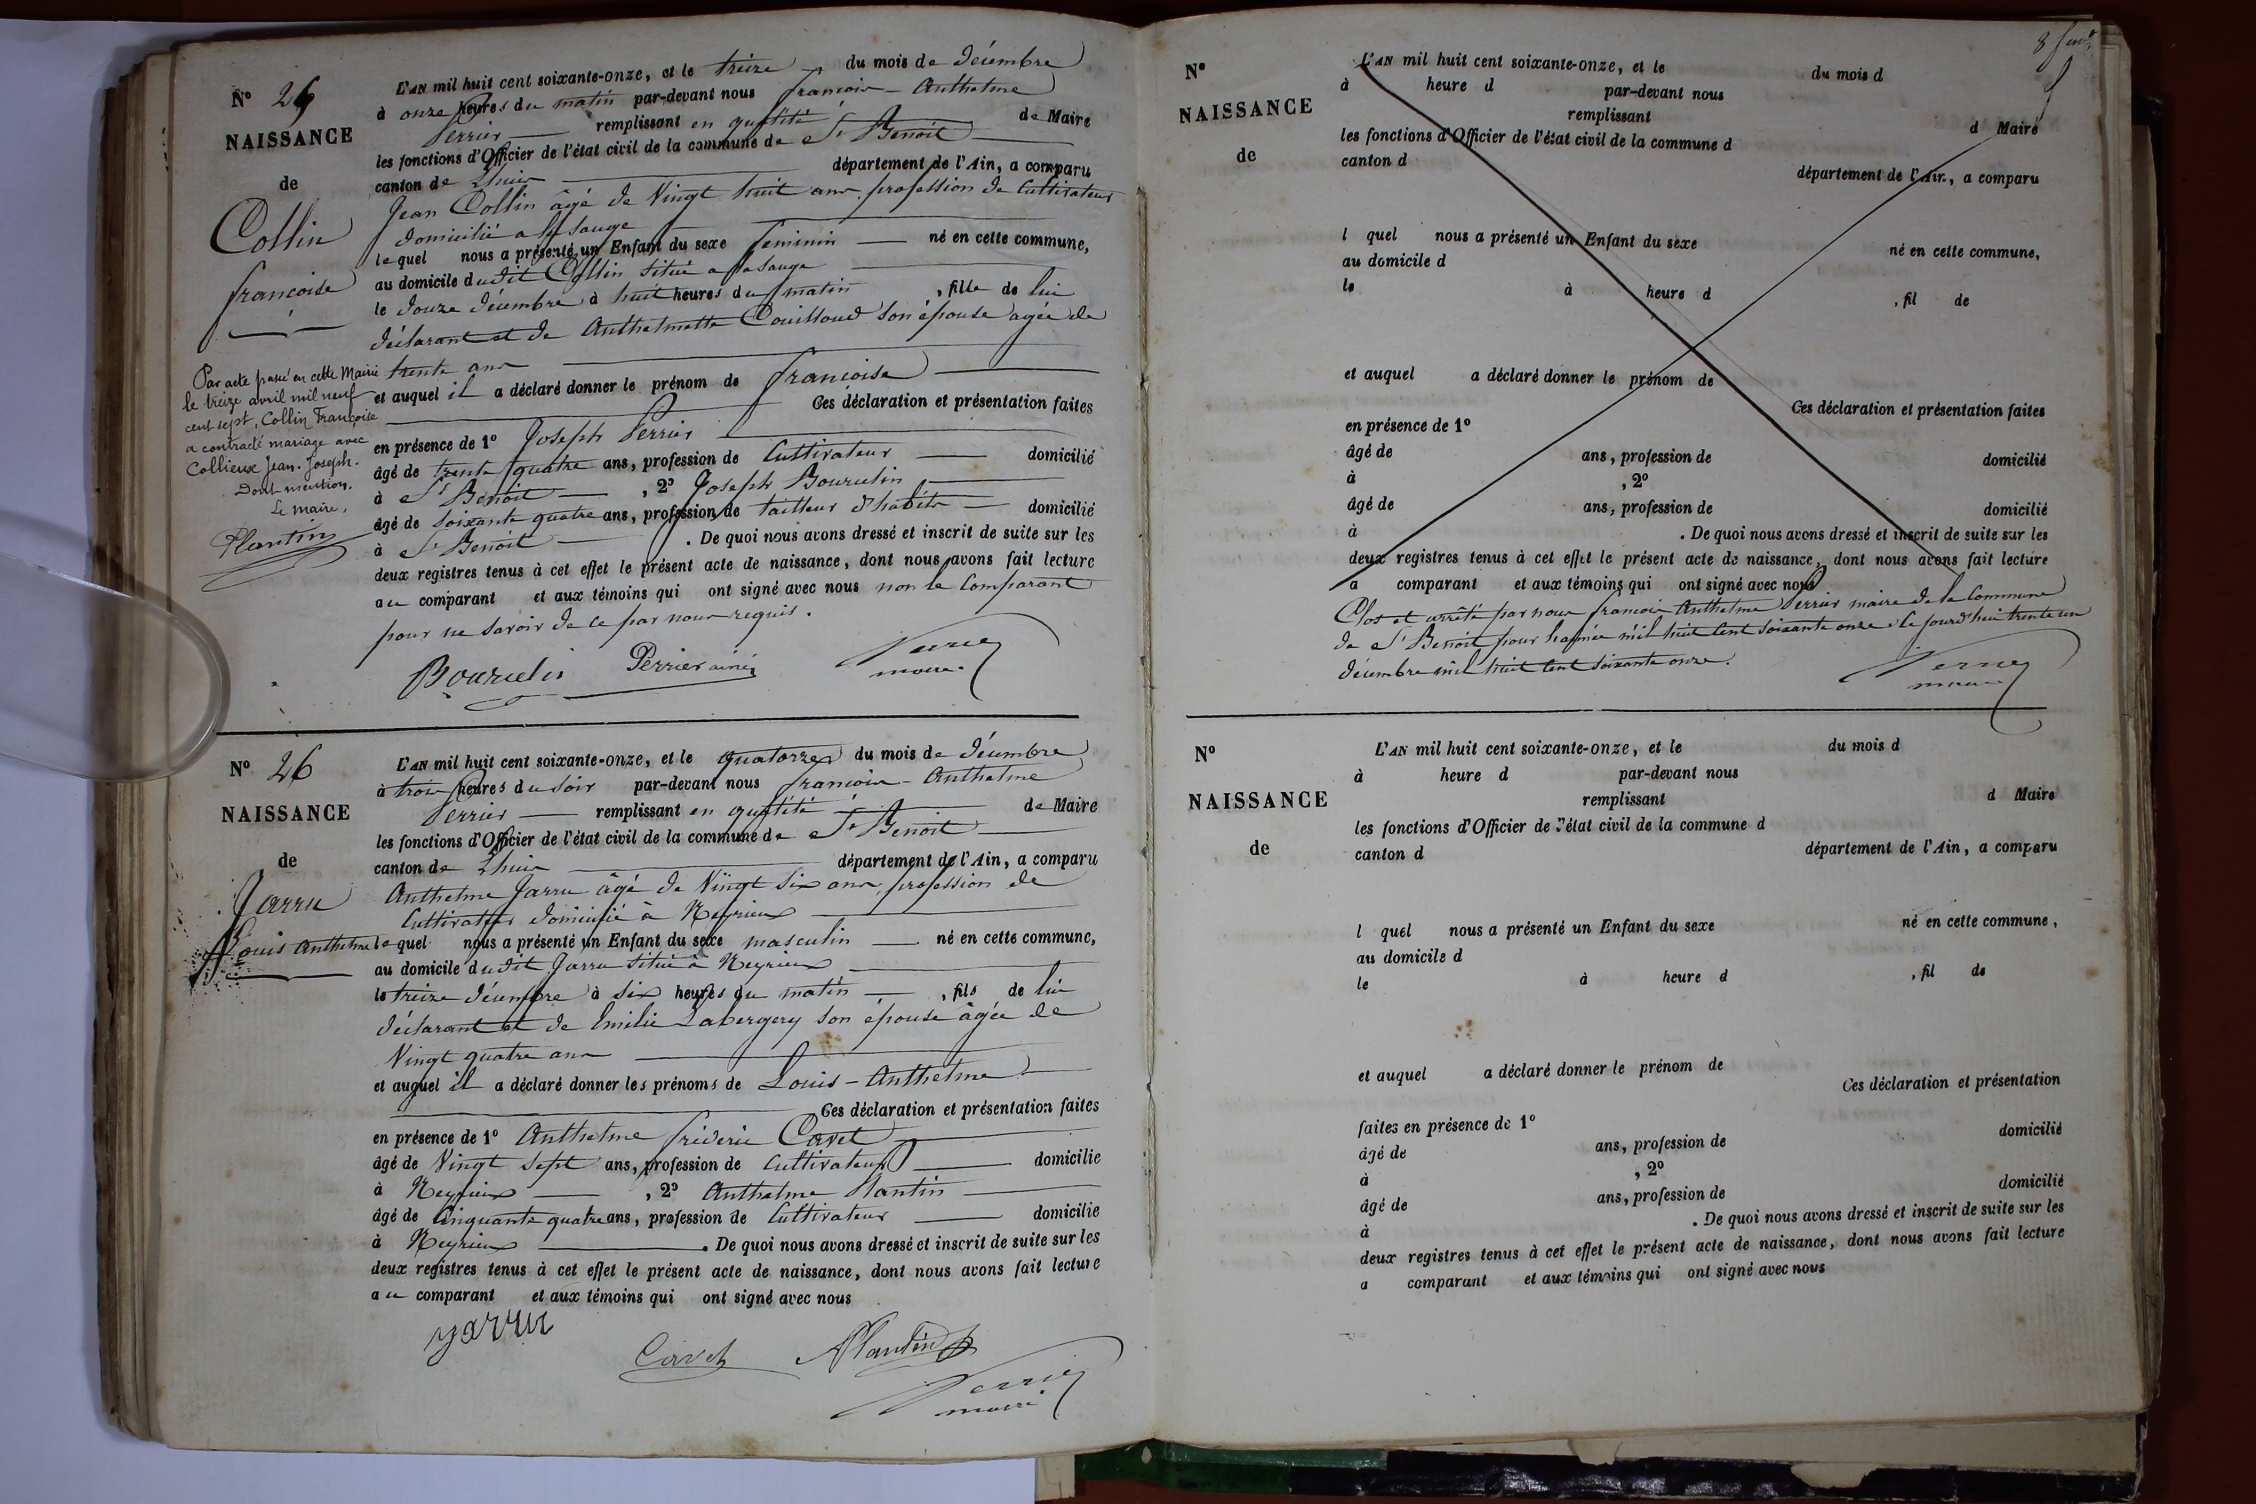 N° 25
NAISSANCE
de
Collin
francoise
L'AN mil huit cent soixante-onze, et le treize du mois de décembre
à onze heures du matin par-devant nous francois - Anthelme
Perrier remplissant en qualité de Maire
les fonctions d'Officier de l'état civil de la commune de St Benoit
canton de Lhuis département de l'Ain, a comparu
Jean Collin âgé de Vingt huit ans profession de Cultivateur
domicilié a la sauge
lequel nous a présenté un Enfant du sexe feminin né en cette commune,
au domicile dudit Collin situé a la sauge
le douze décembre à huit heures du matin , fille de lui
déclarant et de Anthelmette Couilloud son épouse agée de
trente ans
et auquel il a déclaré donner le prénom de francoise
Ces déclaration et présentation faites
en présence de 1° Joseph Perrier
âgé de trente quatre ans, profession de Cultivateur domicilié
à St Benoit , 2° Joseph Bourdin
âgé de soixante quatre ans, profession de tailleur d'habits domicilié
à St Benoit . De quoi nous avons dressé et inscrit de suite sur les
deux registres tenus à cet effet le présent acte de naissance, dont nous avons fait lecture
au comparant et aux témoins qui ont signé avec nous non le Comparant
pour ne savoir de ce par nous requis.
Perrier ainé
maire
Par acte passé en cette Mairie
le treize avril mil neuf
cent sept, Collin Françoise
a contracté mariage avec
Collieux Jean-Joseph.
Dont mention.
Le maire,
Plantin
N° 26
NAISSANCE
de
Jarru
Louis Anthelme
L'AN mil huit cent soixante-onze, et le quatorze du mois de décembre
à trois heures du soir par-devant nous francois - Anthelme
Perrier remplissant en qualité de Maire
les fonctions d'Officier de l'état civil de la commune de St Benoit
canton de Lhuis département de l'Ain, a comparu
Anthelme Jarru âgé de Vingt six ans, profession de
Cultivateur domicilié à Neyrieux
lequel nous a présenté un Enfant du sexe masculin né en cette commune,
au domicile dudit Jarru situé à Neyrieux
le treize décembre à six heures du matin , fils de lui
déclarant et de Emilie Labergery son épouse âgée de
Vingt quatre ans
et auquel il a déclaré donner les prénoms de Louis - Anthelme
Ces déclaration et présentation faites
en présence de 1° Anthelme fréderic Cavet
âgé de Vingt sept ans, profession de Cultivateur domicilié
à Neyrieux , 2° Anthelme Plantin
âgé de Cinquante quatre ans, profession de Cultivateur domicilié
à Neyrieux . De quoi nous avons dressé et inscrit de suite sur les
deux registres tenus à cet effet le présent acte de naissance, dont nous avons fait lecture
au comparant et aux témoins qui ont signé avec nous
jarru
Cavet Plantin
Perrier
maire
N°
NAISSANCE
de
L'AN mil huit cent soixante-onze, et le du mois d
à heure d par-devant nous
remplissant d Maire
les fonctions d'Officier de l'état civil de la commune d
canton d département de l'Ain, a comparu
l quel nous a présenté un Enfant du sexe né en cette commune,
au domicile d
le à heure d , fil de
et auquel a déclaré donner le prénom de
Ces déclaration et présentation faites
en présence de 1°
âgé de ans, profession de domicilié
à , 2°
âgé de ans, profession de domicilié
à . De quoi nous avons dressé et inscrit de suite sur les
deux registres tenus à cet effet le présent acte de naissance, dont nous avons fait lecture
a comparant et aux témoins qui ont signé avec nous
Clos et arrêté par nous francois Anthelme Perrier maire de la Commune
de St Benoit pour l'année mil huit cent soixante onze, ce jourd'hui trente un
décembre mil huit cent soixante onze.
Perrier
maire
N°
NAISSANCE
de
L'AN mil huit cent soixante-onze, et le du mois d
à heure d par-devant nous
remplissant d Maire
les fonctions d'Officier de l'état civil de la commune d
canton d département de l'Ain, a comparu
l quel nous a présenté un Enfant du sexe né en cette commune,
au domicile d
le à heure d , fil de
et auquel a déclaré donner le prénom de
Ces déclaration et présentation
faites en présence de 1°
âgé de ans, profession de domicilié
à , 2°
âgé de ans, profession de domicilié
à . De quoi nous avons dressé et inscrit de suite sur les
deux registres tenus à cet effet le présent acte de naissance, dont nous avons fait lecture
a comparant et aux témoins qui ont signé avec nous